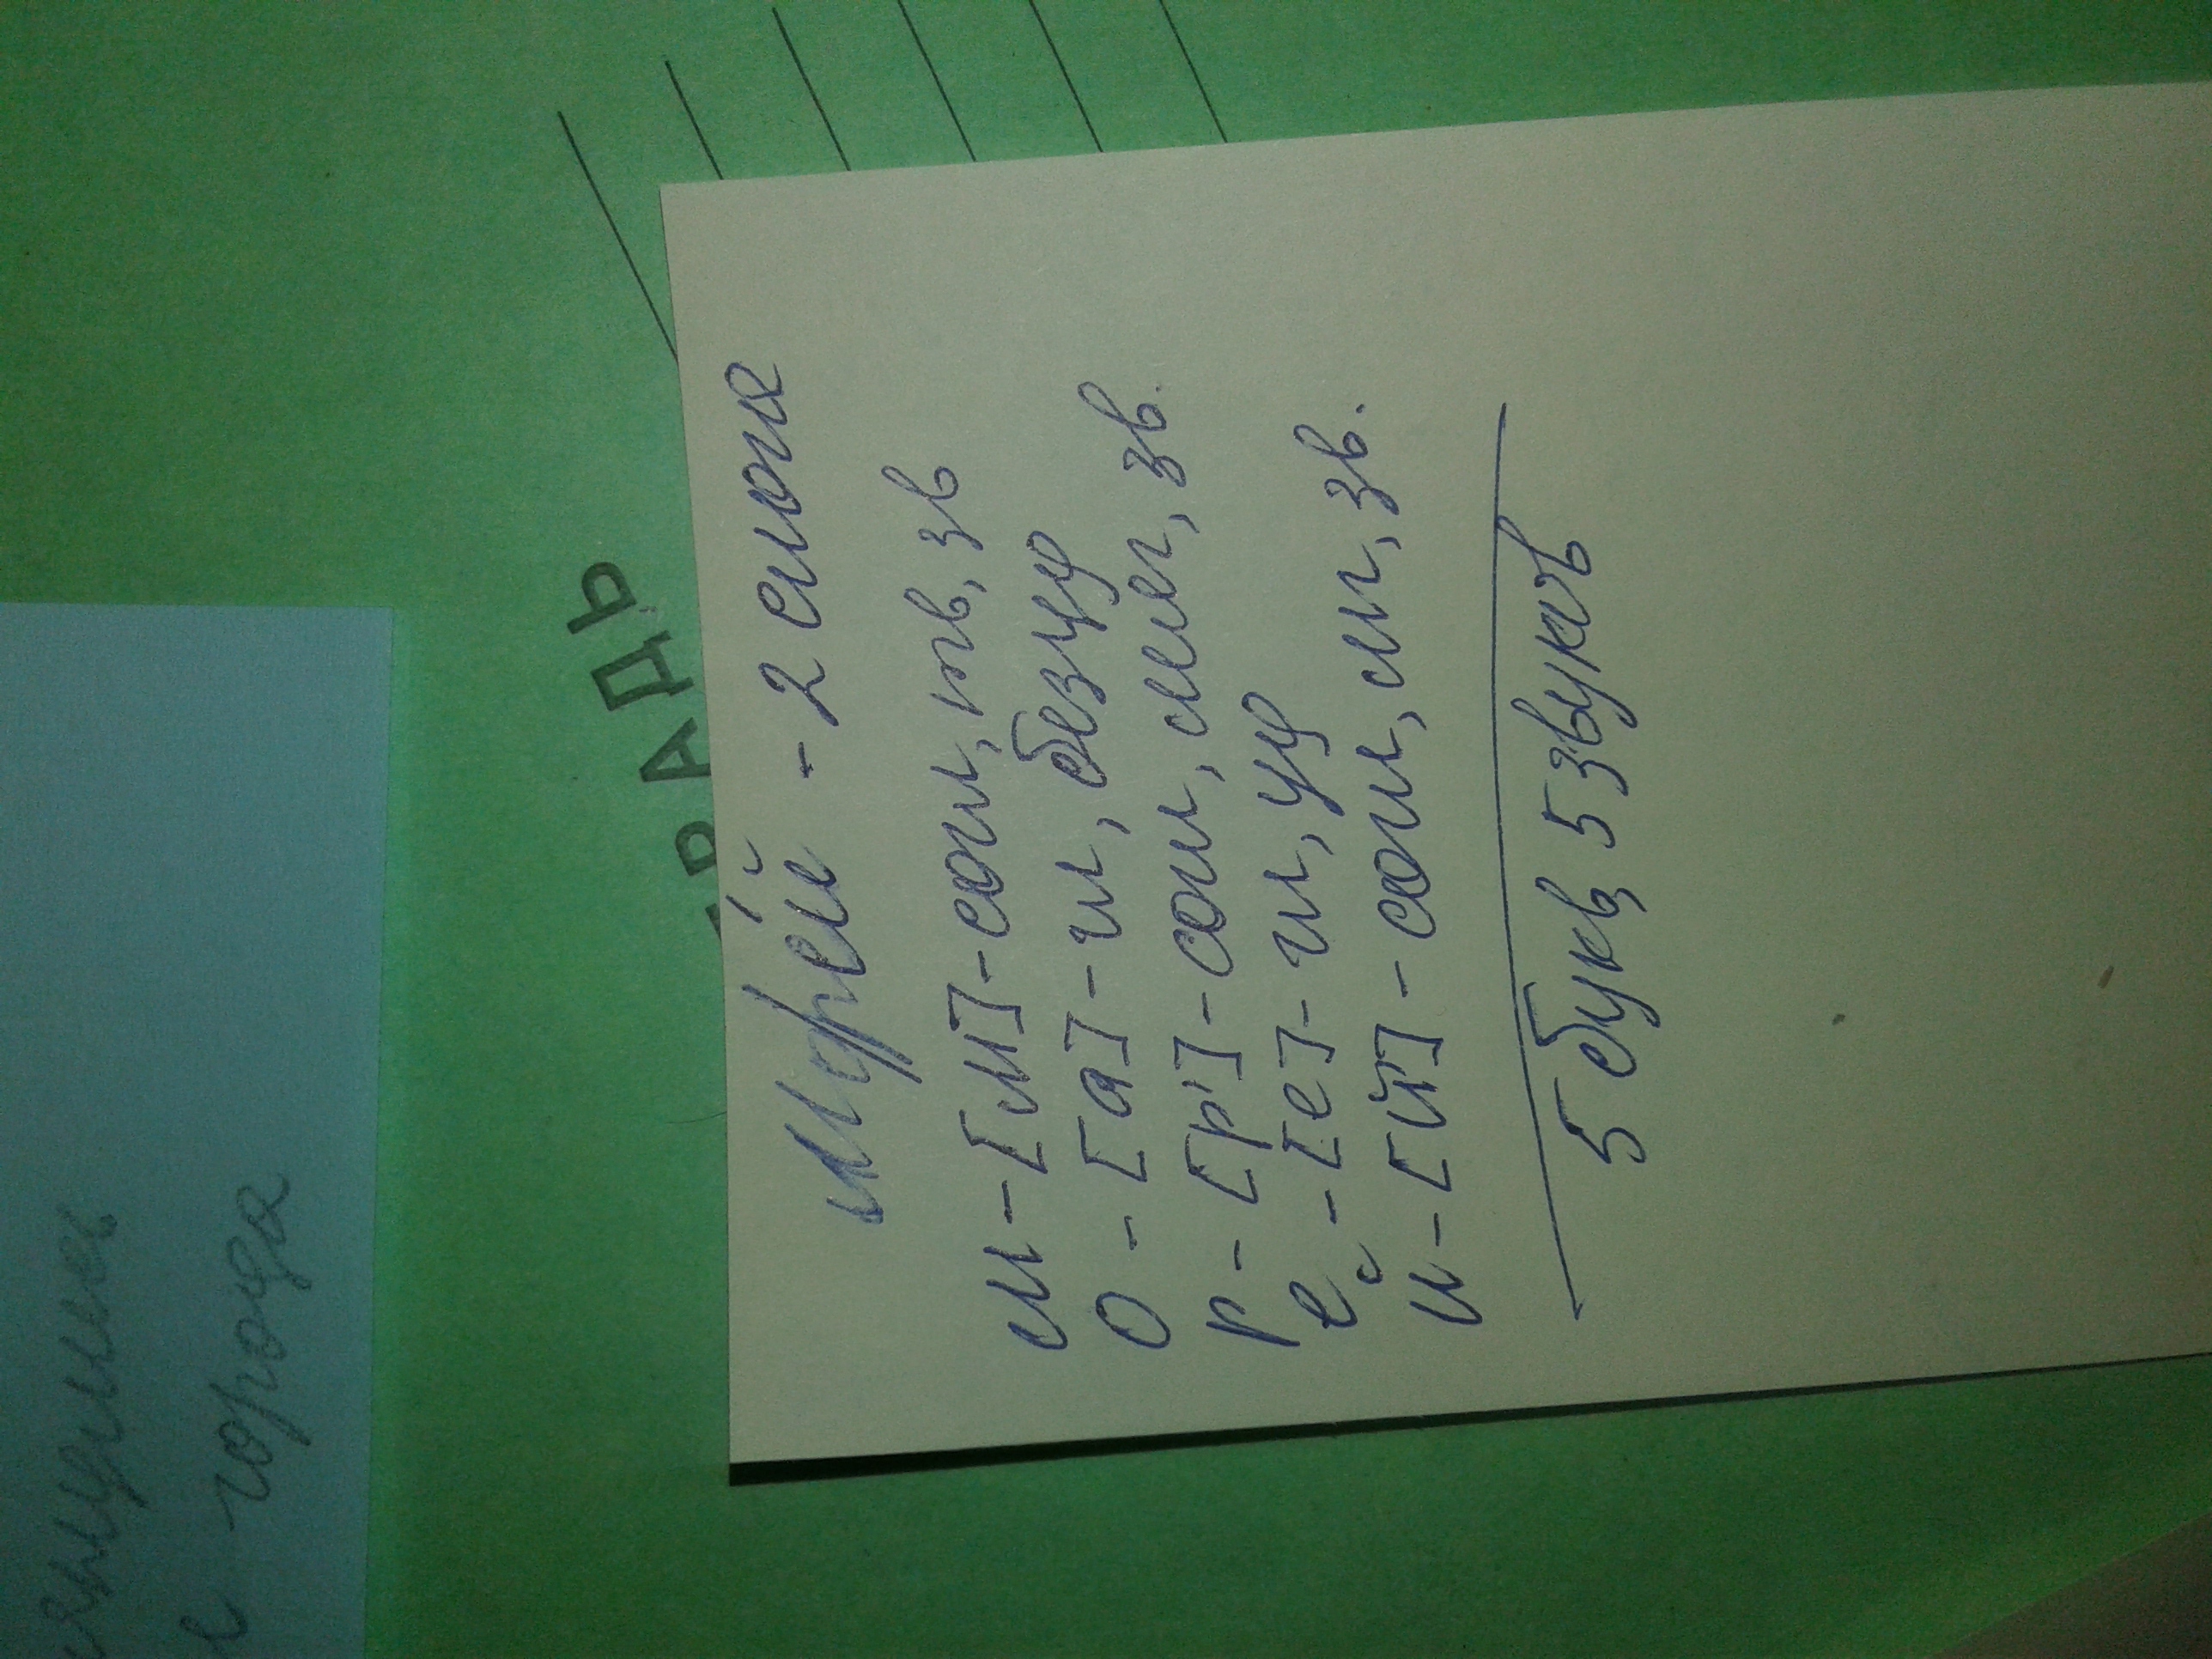 морéй - 2 слога
м - [м] - согл, тв, зв
о - [а] - гл, безуд
р - [р'] - согл, мяг, зв.
е - [е] - гл, уд
й - [й'] - согл, мяг, зв.
5 букв, 5 звуков
РАДЬ
города